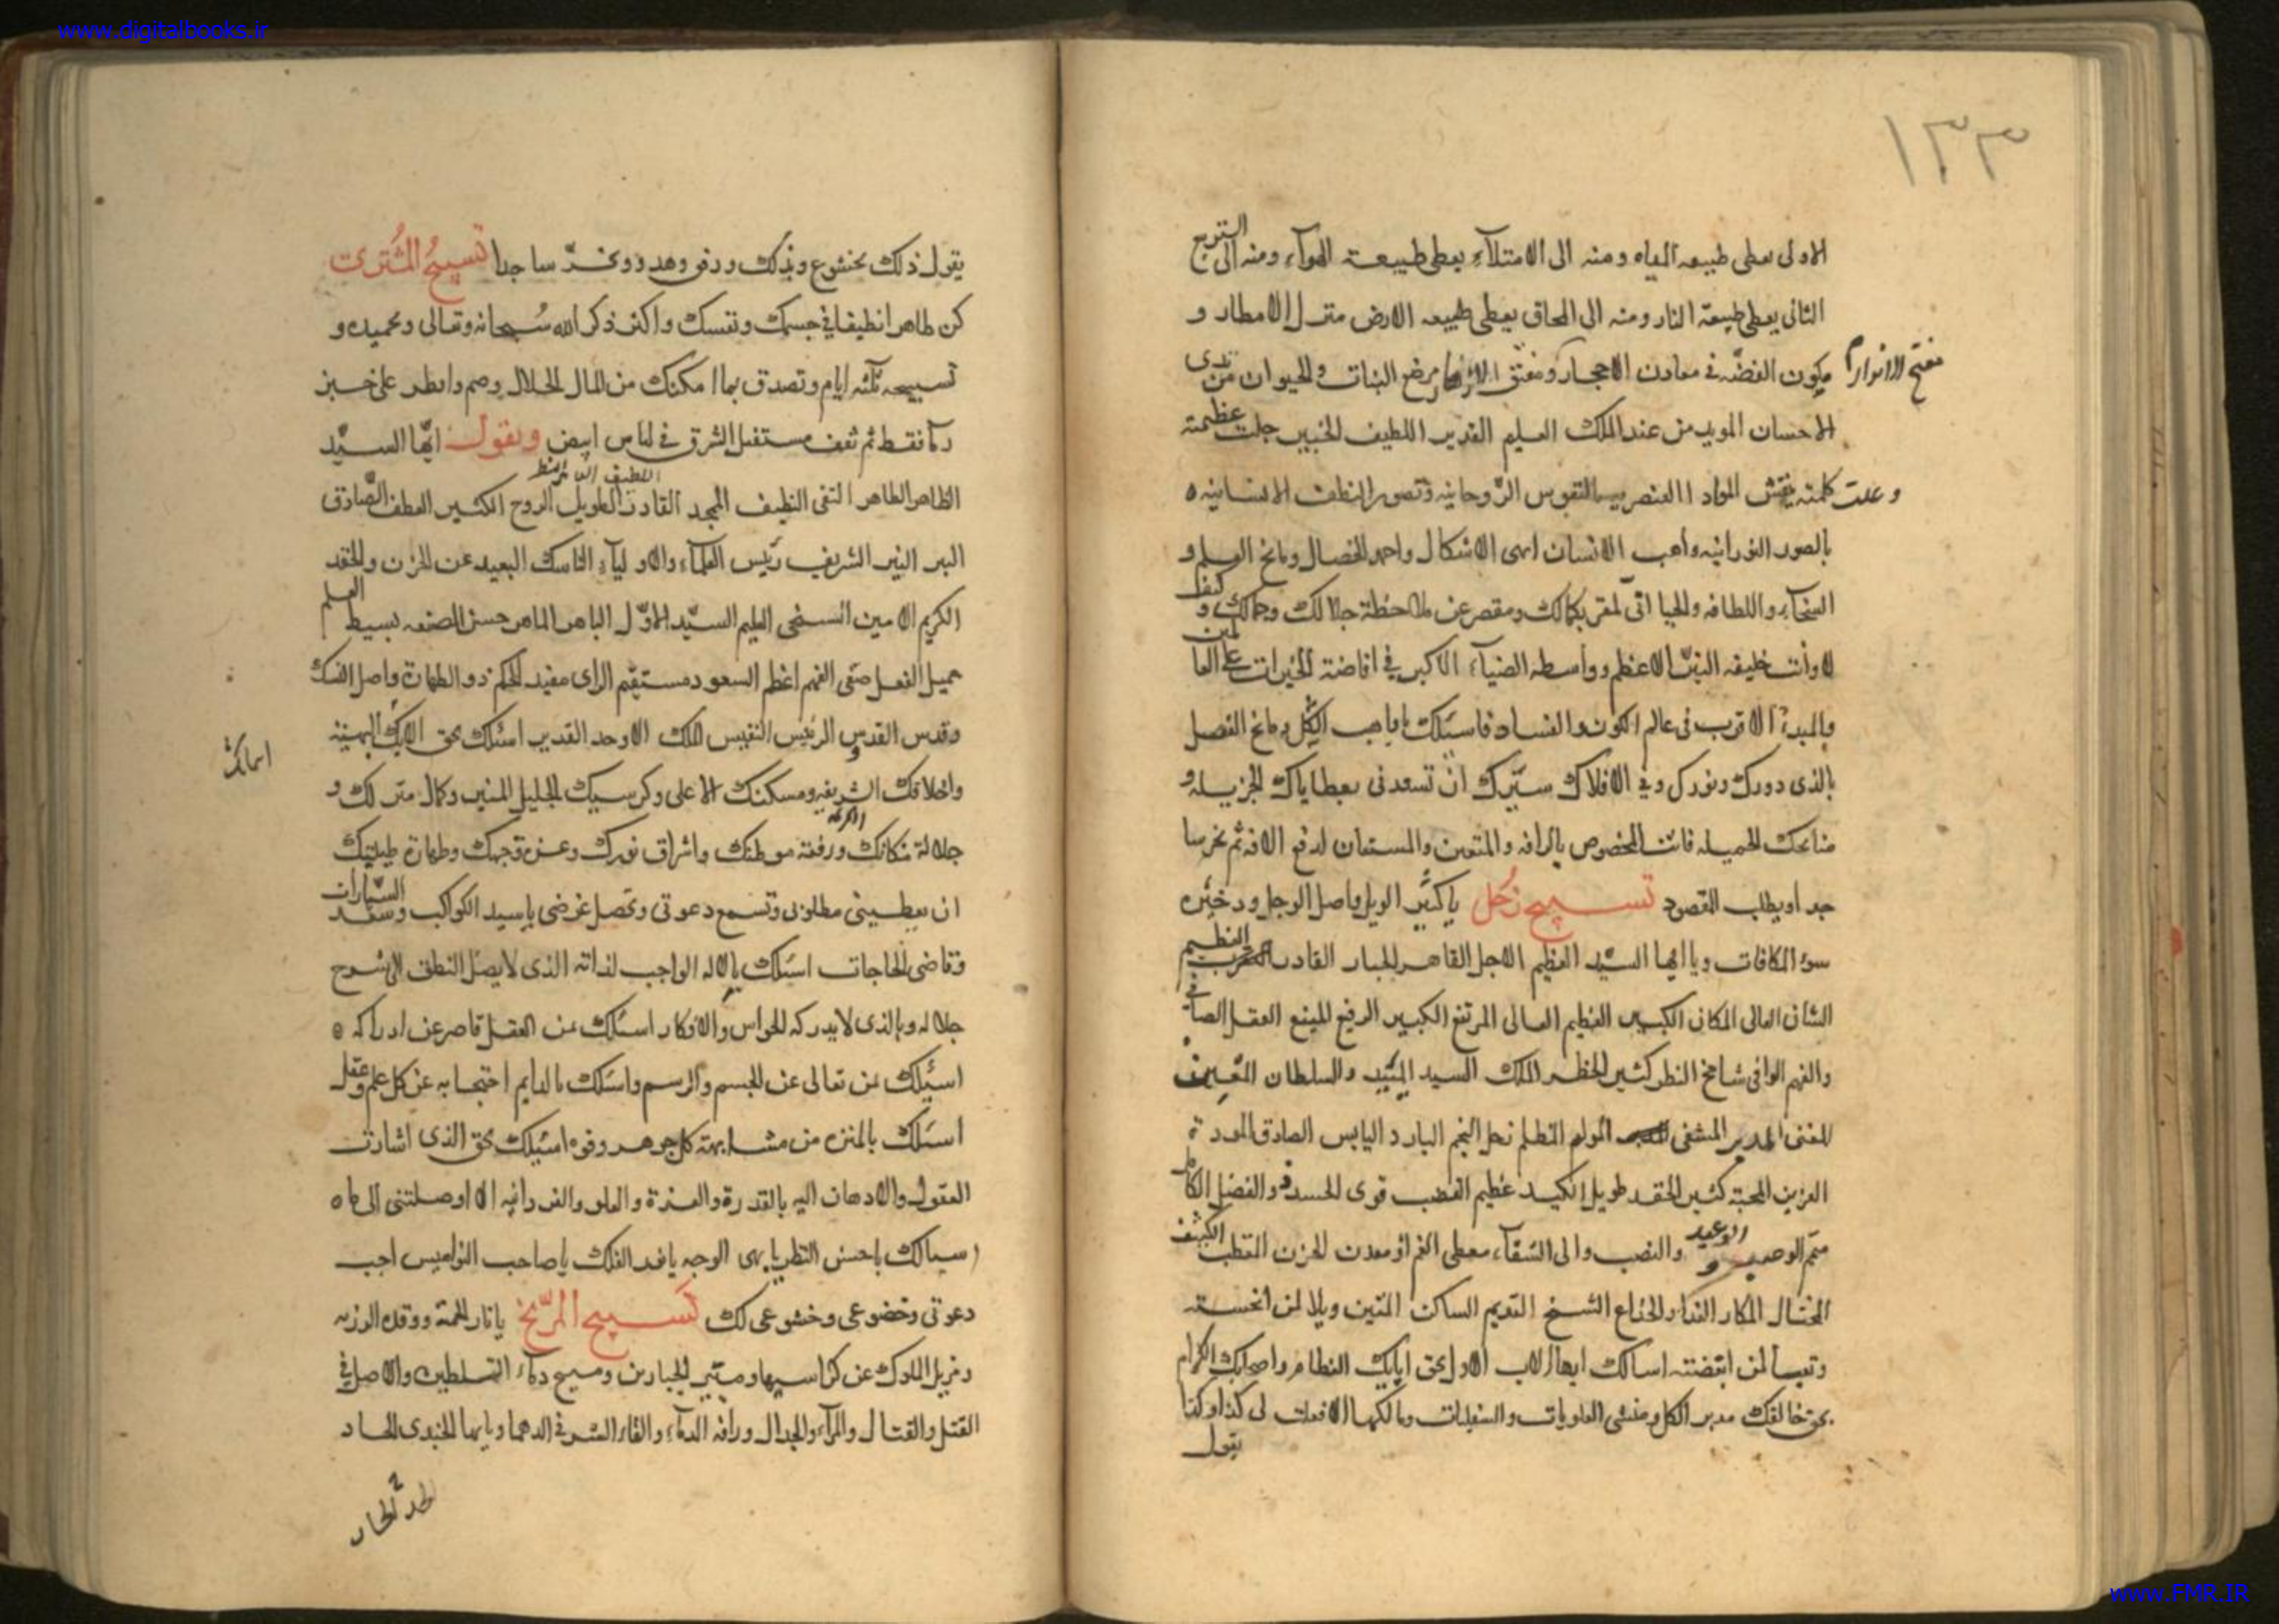 www.digitalbooks.ir
١٣٣
الاولى يعطى طبيعه المياه ومنه الى الامتلآء يعطى طبيعة الهوآء ومنه الى التربيع
الثانى يعطى طبيعة النار ومنه الى المحاق يعطى طبيعه الارض منزل الامطار و
مكون الفضّه فى معادن الاحجار ومفتق مرضع النبات والحيوان من ثدى
مفتح الانوار
الاحسان المويد من عند الملك العليم القدير اللطيف الخبير جلت عظمته
وعلت كلمته ينقش المواد العنصرييه النفوس الرّوحانيه وتصور النطف الانسانيه
بالصور النورانيه واهب الانسان ابهى الاشكال واحمد الخصال ومانح العلم و
السخآء واللطافه والحيا انّى لمقر بكمالك ومقصر عن ملاحظة جلالك وجمالك وكيف
لا وانت خليفه النيّر الاعظم وواسطه الضيآء الاكبر فى افاضة الخيرات على العالمين
والمبدء الاقرب فى عالم الكون والفساد فاسئلك يا واهب الكل ومانح الفضل
بالذى دورك ونورك وفى الافلاك سيّرك ان تسعدنى بعطاياك الجزيله و
منائحك الجميله فانت المخصوص بالرافه والمتعين والمستعان لدفع الافه ثم تخر سا
جدا ويطلب المقصود تسبيح زحل يا كثير الويل واصل الوجل ودخيره
سوء المكافات ويا ايها السيّد العظيم الاجل القاهر الجبار القادر العظيم
الشان العالى المكان الكبير العظيم العالى المرتفع الكبير الرفيع المنيع العقل الصافى
والفهم الوافى شامخ النظر كثير الخطر الملك السيد المئيد والسلطان
المفنى المدبر المشفى المولم المظلم زحل النجم البارد اليابس الصادق المودة
العزيز المحبة كثير الحقد طويل الكيد عظيم الغضب قوى الحسد والفضل الكامل
متمّ الوعيد والنصب والى الشقآء معطى الغم ومعدن الحزن الكثيف
المحتال المكار الغدار الخداع الشيخ القديم الساكن المتين ويلا لمن انحسته
وتعسا لمن ابغضته اسالك ايها الاب الاول بحق ابايك العظام واصحابك الكرام
بحق خالقك مدبر الكل ومنشى العلويات والسفليات ومالكها الا فعلت لى كذا وكذا
يقول
يقول ذلك بخشوع وتخرّ ساجدا تسبيحُ المُشترى
كن طاهرا نظيفا فى جسمك ونفسك واكثر ذكر الله سُبحانه وتعالى وتحميده و
تسبيحه ثلثه ايام وتصدق بما امكنك من المال الحلال وصم وافطر على خبز
وما فقط ثم تقف مستقبل الشرق فى لباس ابيض ويقول ايّها السيّد
الظاهر الطاهر التقى النظيف المجد القادر الطويل الروح الكثير العطف الصّادق
البر النير الشريف رئيس العلمآء والاوليآء الناسك البعيد عن الحزن والحقد
الكريم الامين السخى العليم السيّد الاوّل الباهر الماهر حسن الصنعه بسيط العلم
جميل الفعل صفى الفهم اعظم السعود مستقيم الراى مفيد الحكم ذو الطهارة واصل النسك
وقدس القدس الرئيس النفيس الملك الاوحد القدير اسئلك بحق البهيّة
واخلاقك الشريفه ومسكنك الاعلى وكرسيك الجليل المنير وكمال منزلك و
جلالة مكانك ورفعة موطنك واشراق نورك وعزة وجهك وطهارة طينتك
ان يعطينى مطلوبى وتسمع دعوتى وتحصل غرضى يا سيد الكواكب وسعد السّيارات
وقاضى الحاجات اسئلك بالاله الواجب لذاته الذى لا يصل النطق الى شرح
جلاله وبالذى لا يدركه الحواس والافكار اسئلك بمن العقل قاصر عن ادراكه
اسئلك بمن تعالى عن الجسم والرسم واسئلك بالدايم احتجابه عن كل علم وعقل
اسئلك بالمنزه من مشابهة كل جوهر وقوه اسئلك بحق الذى اشارت
العقول والاذهان اليه بالقدرة والعزة والعلو والفردانيه الا اوصلتنى الى ما
اسالك باحسن النظر يا بهى الوجه يا فرد الفلك يا صاحب النواميس اجب
دعوتى وخضوعى وخشوعى لك تسبيح المرّيخ يا نار
ومزيل الملوك عن كراسيها ومبيّر الجبارين ومبيح دمآء السلاطين والاصل فى
القتل والقتال والمرآء والجدال وراقه الدمآء والقاء الشر فى الدهما ويا ايها الجندى الحاد
www.FMR.IR